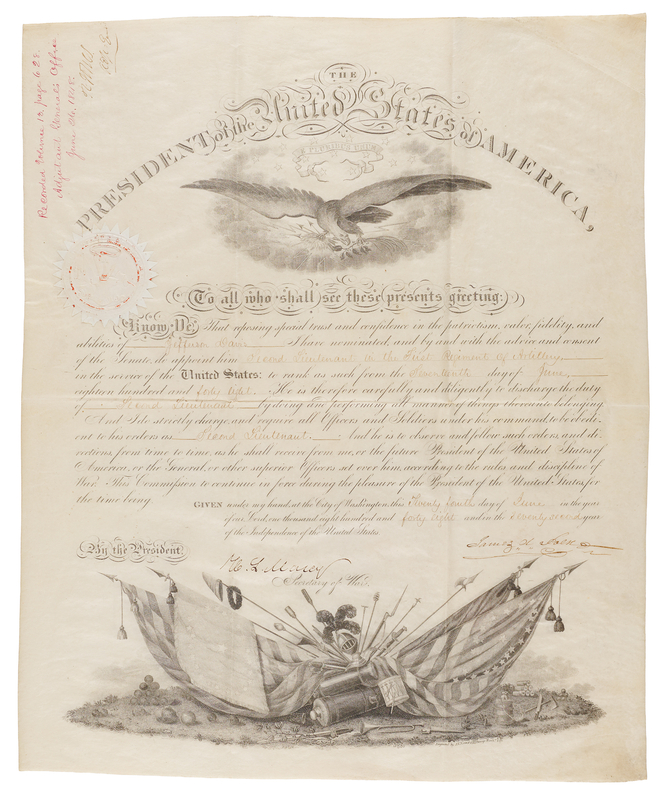 Recorded Volume 12, page 628.
Adjutant General's Office
June
THE
PRESIDENT of the United States of AMERICA,
E PLURIBUS UNUM
To all who shall see these presents greeting:
Know Ye, That reposing special trust and confidence in the patriotism, valor, fidelity, and
abilities of Jefferson I have nominated, and by and with the advice and consent
of the Senate, do appoint him Second Lieutenant in the First Regiment of Artillery
in the service of the United States: to rank as such from the Seventeenth day of June,
eighteen hundred and forty eight. He is therefore carefully and diligently to discharge the duty
of Second Lieutenant by doing and performing all manner of things thereunto belonging.
And I do strictly charge, and require all Officers and Soldiers under his command, to be obedi-
ent to his orders as Second Lieutenant. And he is to observe and follow such orders, and di-
rections, from time to time, as he shall receive from me, or the future President of the United States of
America, or the General, or other superior Officers set over him, according to the rules and discipline of
War. This Commission to continue in force during the pleasure of the President of the United States, for
the time being.
GIVEN under my hand, at the City of Washington, this day of June in the year
of our Lord, one thousand eight hundred and forty eight and in the seventy second year
of the Independence of the United States.
By the President
James K. Polk
W. L. Marcy
Secretary of War.